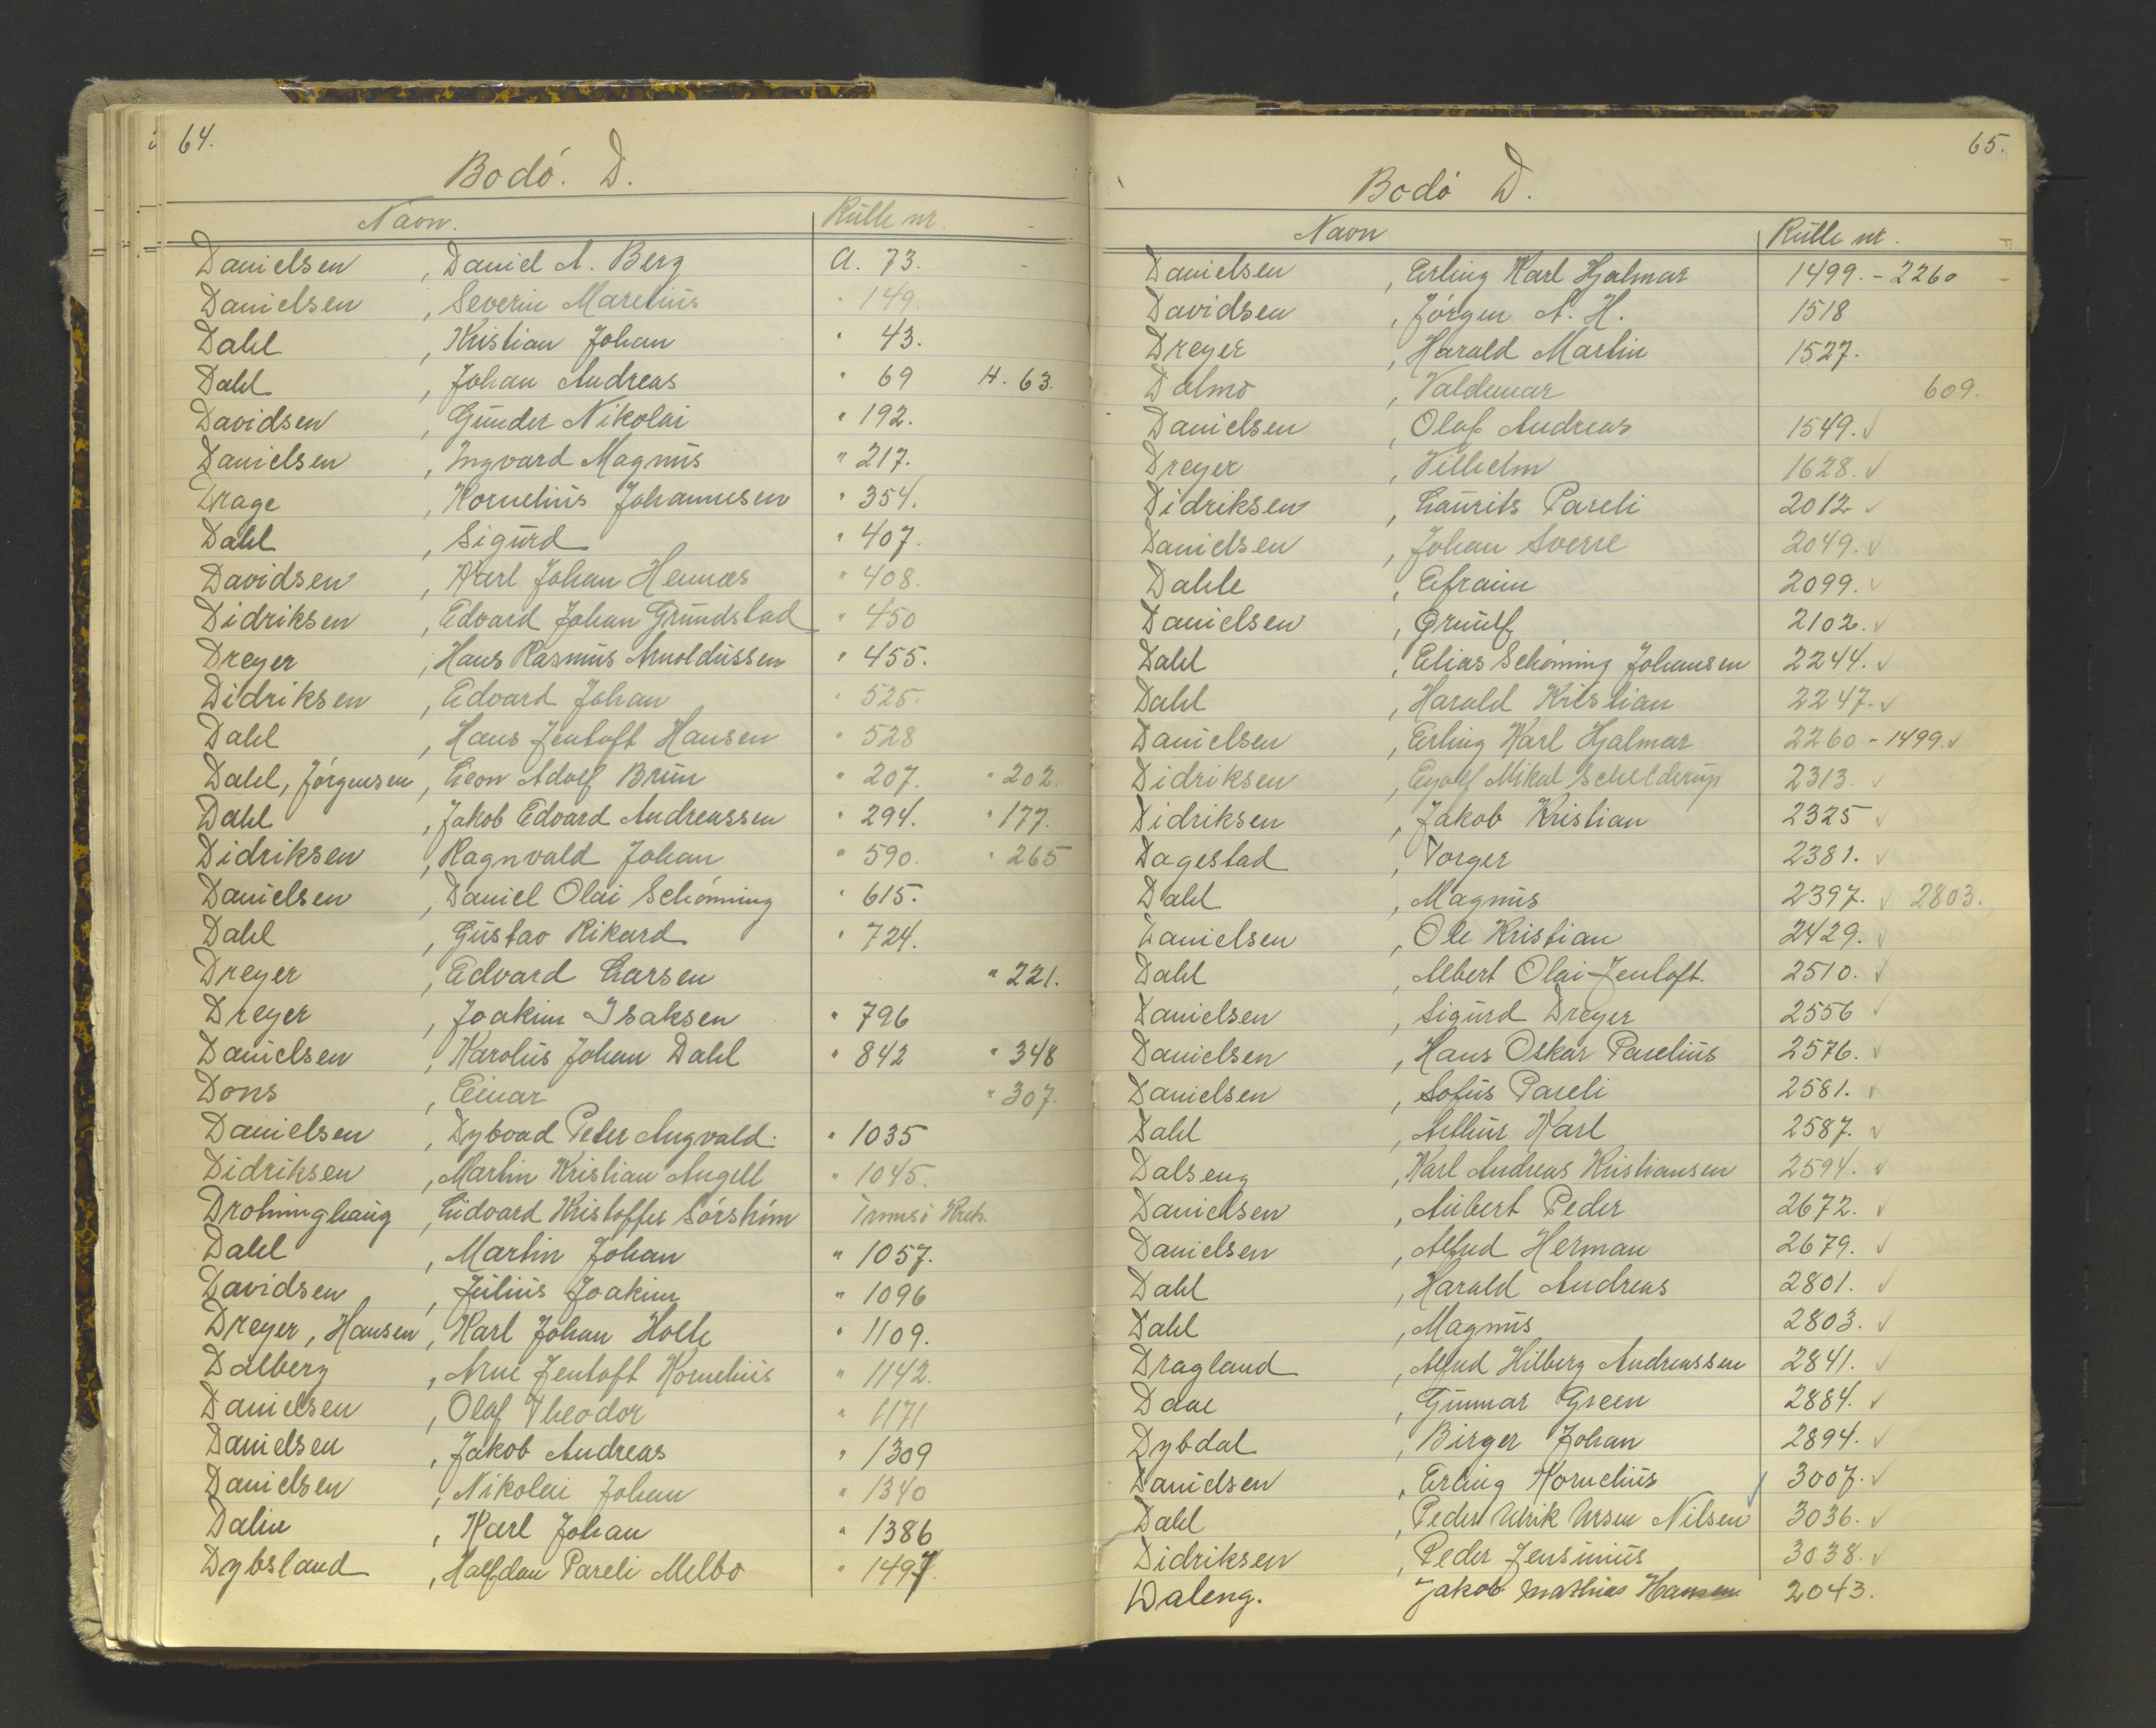 64.
Bodó. D.
Navn. Rulle nr.
Danielsen , Daniel A. Berg A. 73.
Danielsen , Severin Marelius " 149.
Dahl , Kristian Johan " 43.
Dahl , Johan Andreas " 69 H. 63.
Davidsen , Gunder Nikolai " 192.
Danielsen , Ingvard Magnus " 217.
Drage , Kornelius Johannesen " 354.
Dahl , Sigurd " 407.
Davidsen , Karl Johan Hennæs " 408.
Didriksen , Edvard Johan Grundstad " 450
Dreyer , Hans Rasmus Arnoldussen " 455.
Didriksen , Edvard Johan " 525.
Dahl , Hans Jentoft Hansen " 528
Dahl, Jörgensen , Leon Adolf Brun " 207. " 202.
Dahl , Jakob Edvard Andreassen " 294. " 177.
Didriksen , Ragnvald Johan " 590. " 265
Danielsen , Daniel Olai Schönning " 615.
Dahl , Gustav Rikard " 724.
Dreyer , Edvard Larsen " 221.
Dreyer , Joakim Isaksen " 796
Danielsen , Karolus Johan Dahl " 842 " 348
Dons , Einar " 307.
Danielsen , Dybvad Peter Angvald. " 1035
Didriksen , Martin Kristian Angell " 1045.
Drohninghaug , Eidvard Kristoffer Tromsö Krets.
Dahl , Martin Johan " 1057.
Davidsen , Julius Joakim " 1096
Dreyer, Hansen , Karl Johan Holte " 1109.
Dalberg , Arne Jentoft Kornelius " 1142.
Danielsen , Olaf Theodor " 1171
Danielsen , Jakob Andreas " 1309
Danielsen , Nikolai Johan " 1340
Dalin , Karl Johan " 1386
Dybsland , Halfdan Pareli Melbo " 1497.
65.
Bodó D.
Navn Rulle nr.
Danielsen , Erling Karl Hjalmar 1499. - 2260
Davidsen , Jörgen A. H. 1518
Dreyer , Harald Martin 1527.
Dalmo , Valdemar 609.
Danielsen , Olaf Andreas 1549. ✓
Dreyer , Vilhelm 1628. ✓
Didriksen , Laurits Pareli 2012 ✓
Danielsen , Johan Sverre 2049. ✓
Dahle , Efraim 2099. ✓
Danielsen , Grunlf 2102. ✓
Dahl , Elias Schönning Johansen 2244. ✓
Dahl , Harald Kristian 2247. ✓
Danielsen , Erling Karl Hjalmar 2260 - 1499. ✓
Didriksen , Eyolf Mikal Schelderup 2313. ✓
Didriksen , Jakob Kristian 2325 ✓
Dagestad , Torger 2381. ✓
Dahl , Magnus 2397. ✓ 2803.
Danielsen , Ole Kristian 2429. ✓
Dahl , Albert Olai Jentoft. 2510. ✓
Danielsen , Sigurd Dreyer 2556 ✓
Danielsen , Hans Oskar Parelius 2576. ✓
Danielsen , Sofus Pareli 2581. ✓
Dahl , Arthur Karl 2587. ✓
Dalseng , Karl Andreas Kristiansen 2594. ✓
Danielsen , Aubert Peder 2672. ✓
Danielsen , Alfred Herman 2679. ✓
Dahl , Harald Andreas 2801. ✓
Dahl , Magnus 2803. ✓
Dragland , Alfred Hilberg Andreassen 2841. ✓
Daae , Gunnar Green 2884. ✓
Dybdal , Birger Johan 2894. ✓
Danielsen , Erling Kornelius ✓ 3007. ✓
Dahl , Peder Ulrik Ursen Nilsen 3036. ✓
Didriksen , Peder Jensinius 3038. ✓
Daleng. Jakob Mathias Hansen 2043.